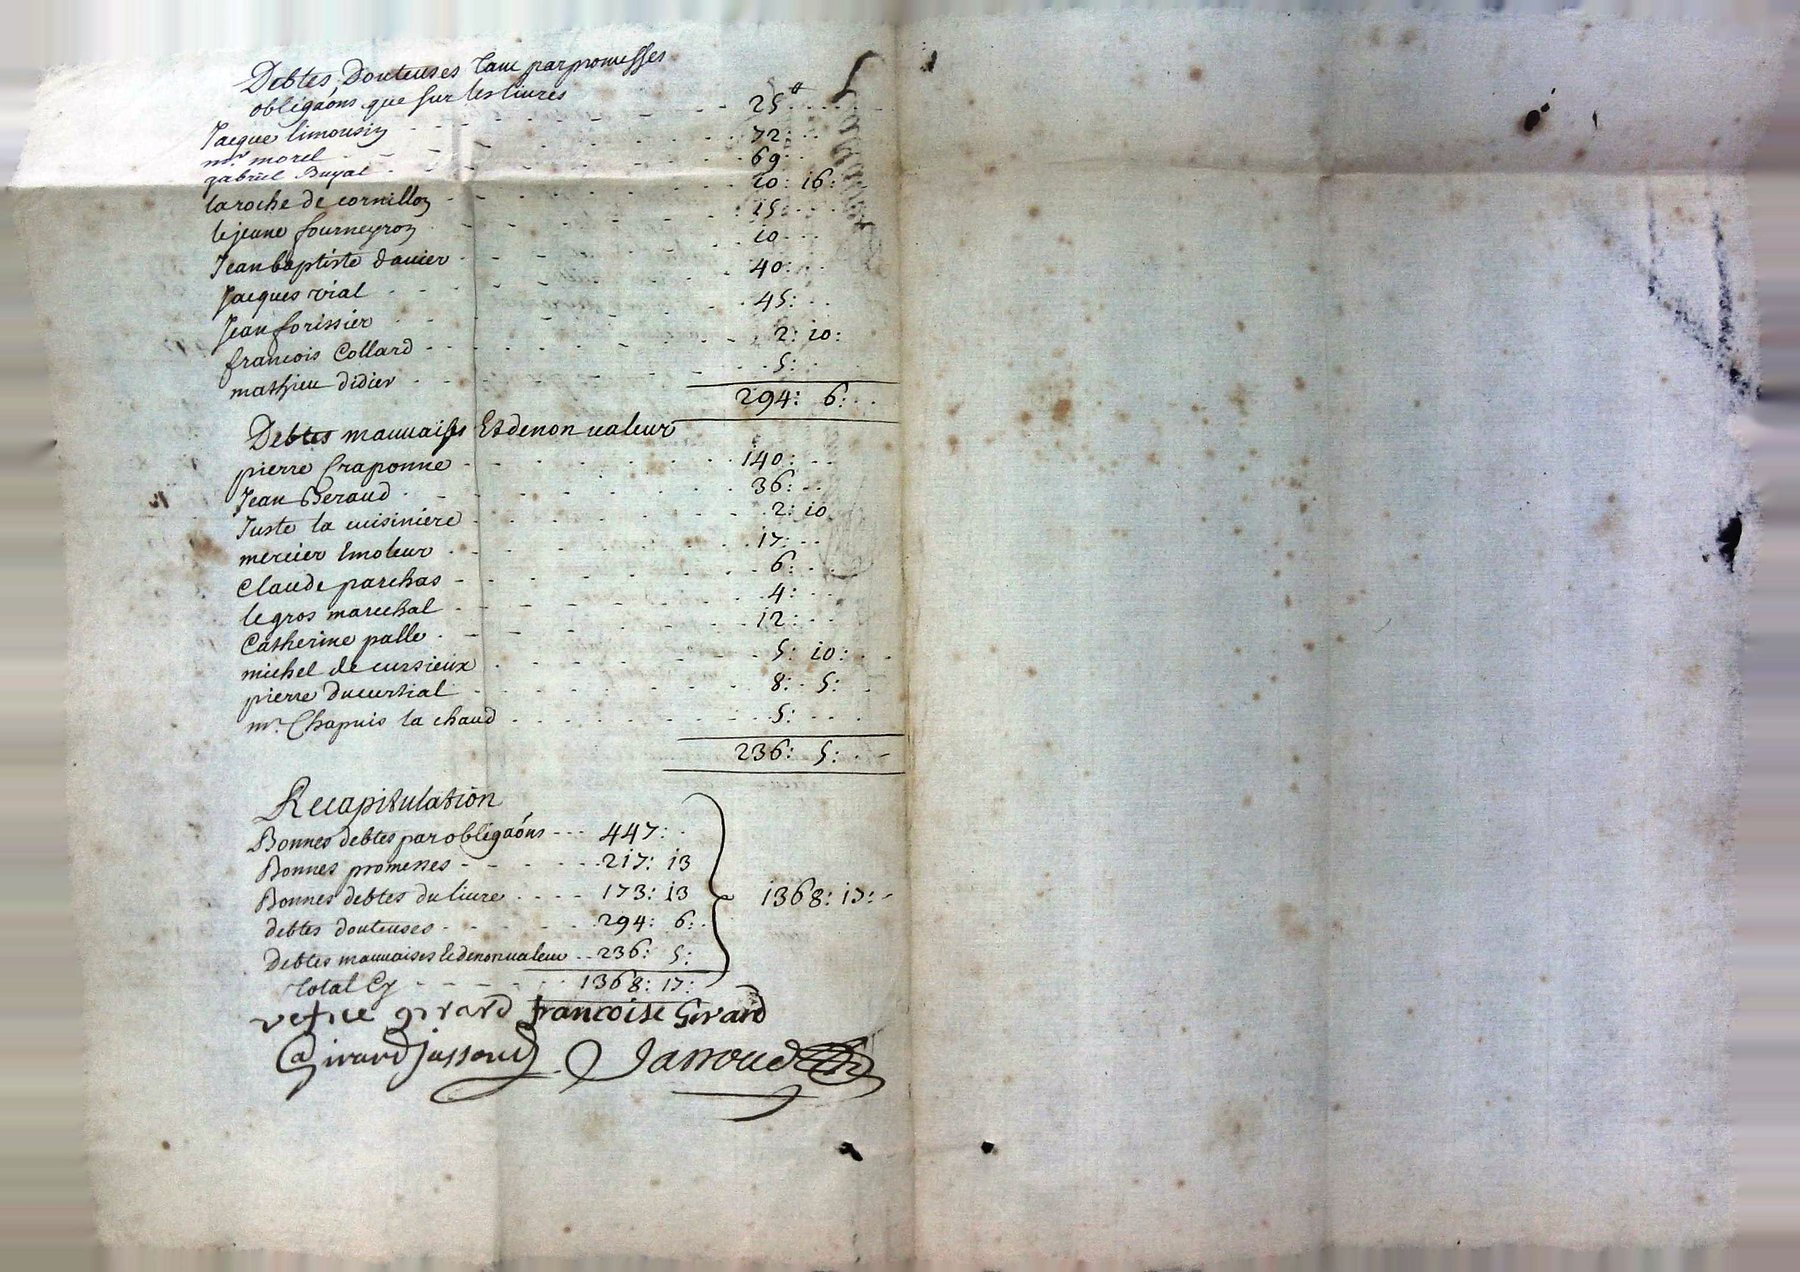 Debtes Douteuses tant par promesses
obligaons que sur les livres
Jacque limousin - - - 25 ₶
mr. morel - - - 72: - -
gabriel Buyat - - - 69 - -
la roche de cornillon - - - 10: 16:
le jeune fourneyron - - - 15 - -
Jean baptiste davier - - - 10 - -
Jacques vial - - - 40: - -
Jean forissier - - - 45: - -
francois Collard - - - 2: 10:
mathieu didier - - - 5:
294: 6: - -
Debtes mauvaises Et de non valeur
pierre fraponne - - - 140: - -
Jean Beraud - - - 36: - -
Juste la cuisiniere - - - 2: 10
mercier Emoleur - - - 17: - -
Claude parchas - - - 6: - -
le gros marechal - - - 4: - -
Catherine palle - - - 12: - -
michel de cursieux - - - 5: 10: - -
pierre ducurtial - - - 8: 5: -
mr. Chapuis la chaud - - - 5: - - -
236: 5: - -
Recapitulation
Bonnes debtes par obligaons - - - 447: -
Bonnes promesses - - - 217: 13
Bonnes debtes du livre - - - 173: 13 1368: 17: -
debtes douteuses - - - 294: 6: -
Debtes mauvaises et de non valeur - - 236: 5:
total Cy - - - 1368: 17:
girard francoise Girard
Girard Jassoud Jassoud